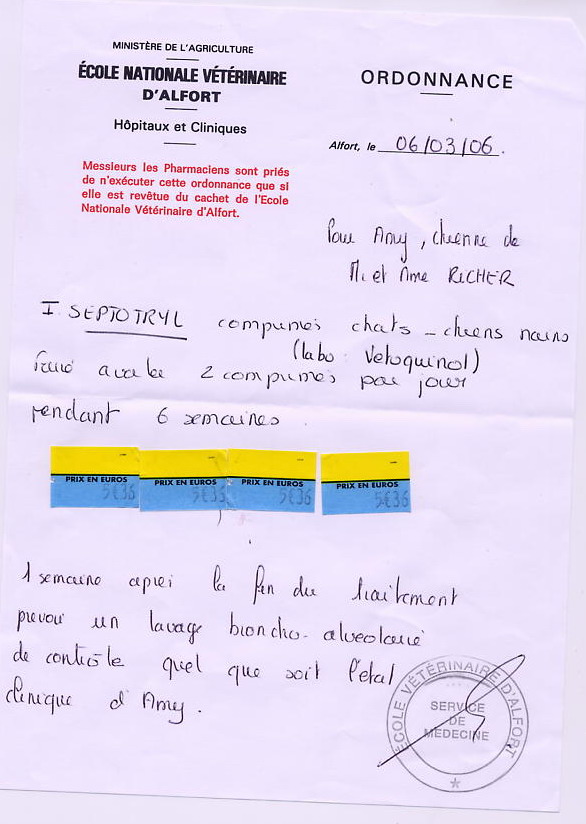 MINISTÈRE DE L'AGRICULTURE
ÉCOLE NATIONALE VÉTÉRINAIRE
D'ALFORT
Hôpitaux et Cliniques
ORDONNANCE
Alfort, le 06/03/06.
Messieurs les Pharmaciens sont priés
de n'exécuter cette ordonnance que si
elle est revêtue du cachet de l'Ecole
Nationale Vétérinaire d'Alfort.
Pour Amy, chienne de
M. et Mme RICHER
I. SEPTOTRYL comprimés chats - chiens nains
(labo : Vetoquinol)
Faire avaler 2 comprimés par jour
pendant 6 semaines.
PRIX EN EUROS PRIX EN EUROS PRIX EN EUROS PRIX EN EUROS
5€36 5€36 5€36 5€36
1 semaine après la fin du traitement
prévoir un lavage broncho-alvéolaire
de contrôle quel que soit l'état
clinique d'Amy.
ECOLE VÉTÉRINAIRE D'ALFORT
SERVICE
DE
MÉDECINE